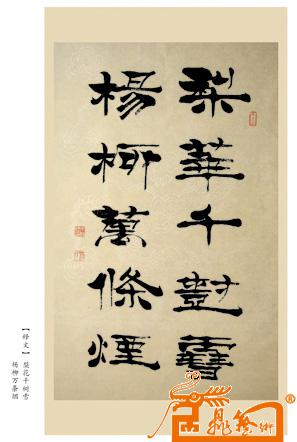 梨華千樹雪
楊柳萬條煙
【释文】梨花千树雪
杨柳万条烟